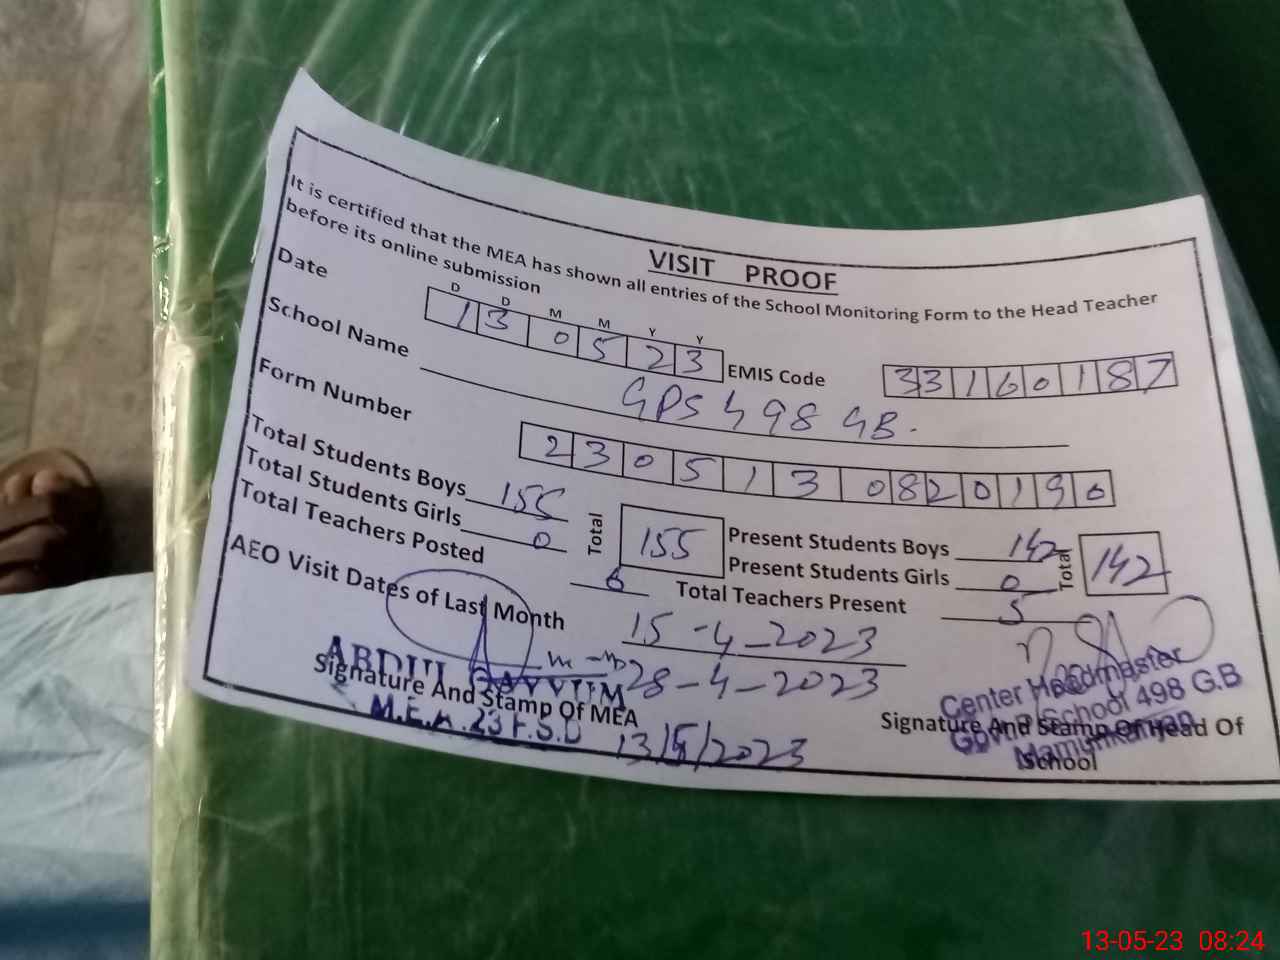 VISIT PROOF
It is certified that the MEA has shown all entries of the School Monitoring Form to the Head Teacher
before its online submission
D D M M Y Y
Date 13 05 23 EMIS Code 33160187
School Name GPS 498 GB.
Form Number 2305130820190
Total Students Boys 155 Total 155 Present Students Boys 142 Total 142
Total Students Girls 0 Present Students Girls 0
Total Teachers Posted 6 Total Teachers Present 5
AEO Visit Dates of Last Month 15-4-2023
28-4-2023
ABDUL QAYYUM
Signature And Stamp Of MEA
M.E.A. 23 F.S.D 13/5/2023
Center Headmaster
Govt. P/School 498 G.B
Mamunkanjan
Signature And Stamp Of Head Of
School
13-05-23 08:24